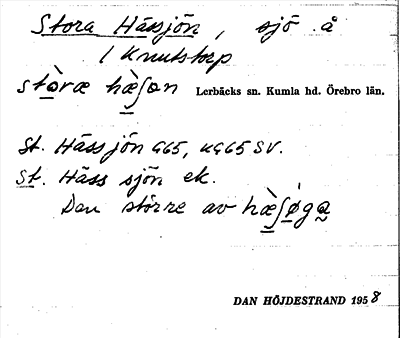 Stora Hässjön, sjö å
/ Knutstorp
stòræ hæ̀ʃøn Lerbäcks sn. Kumla hd. Örebro län.
St. Hässjön G65, KG65 SV.
St. Häss sjön ek.
Den större av hæ̀ʃǿga
DAN HÖJDESTRAND 1958